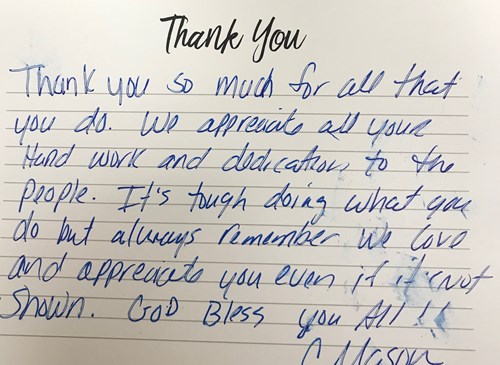 Thank You
Thank you so much for all that
you do. We appreciate all your
Hard work and dedication to the
people. It's tough doing what you
do but always remember we love
and appreciate you even if it's not
shown. God Bless you All!!
C Mason